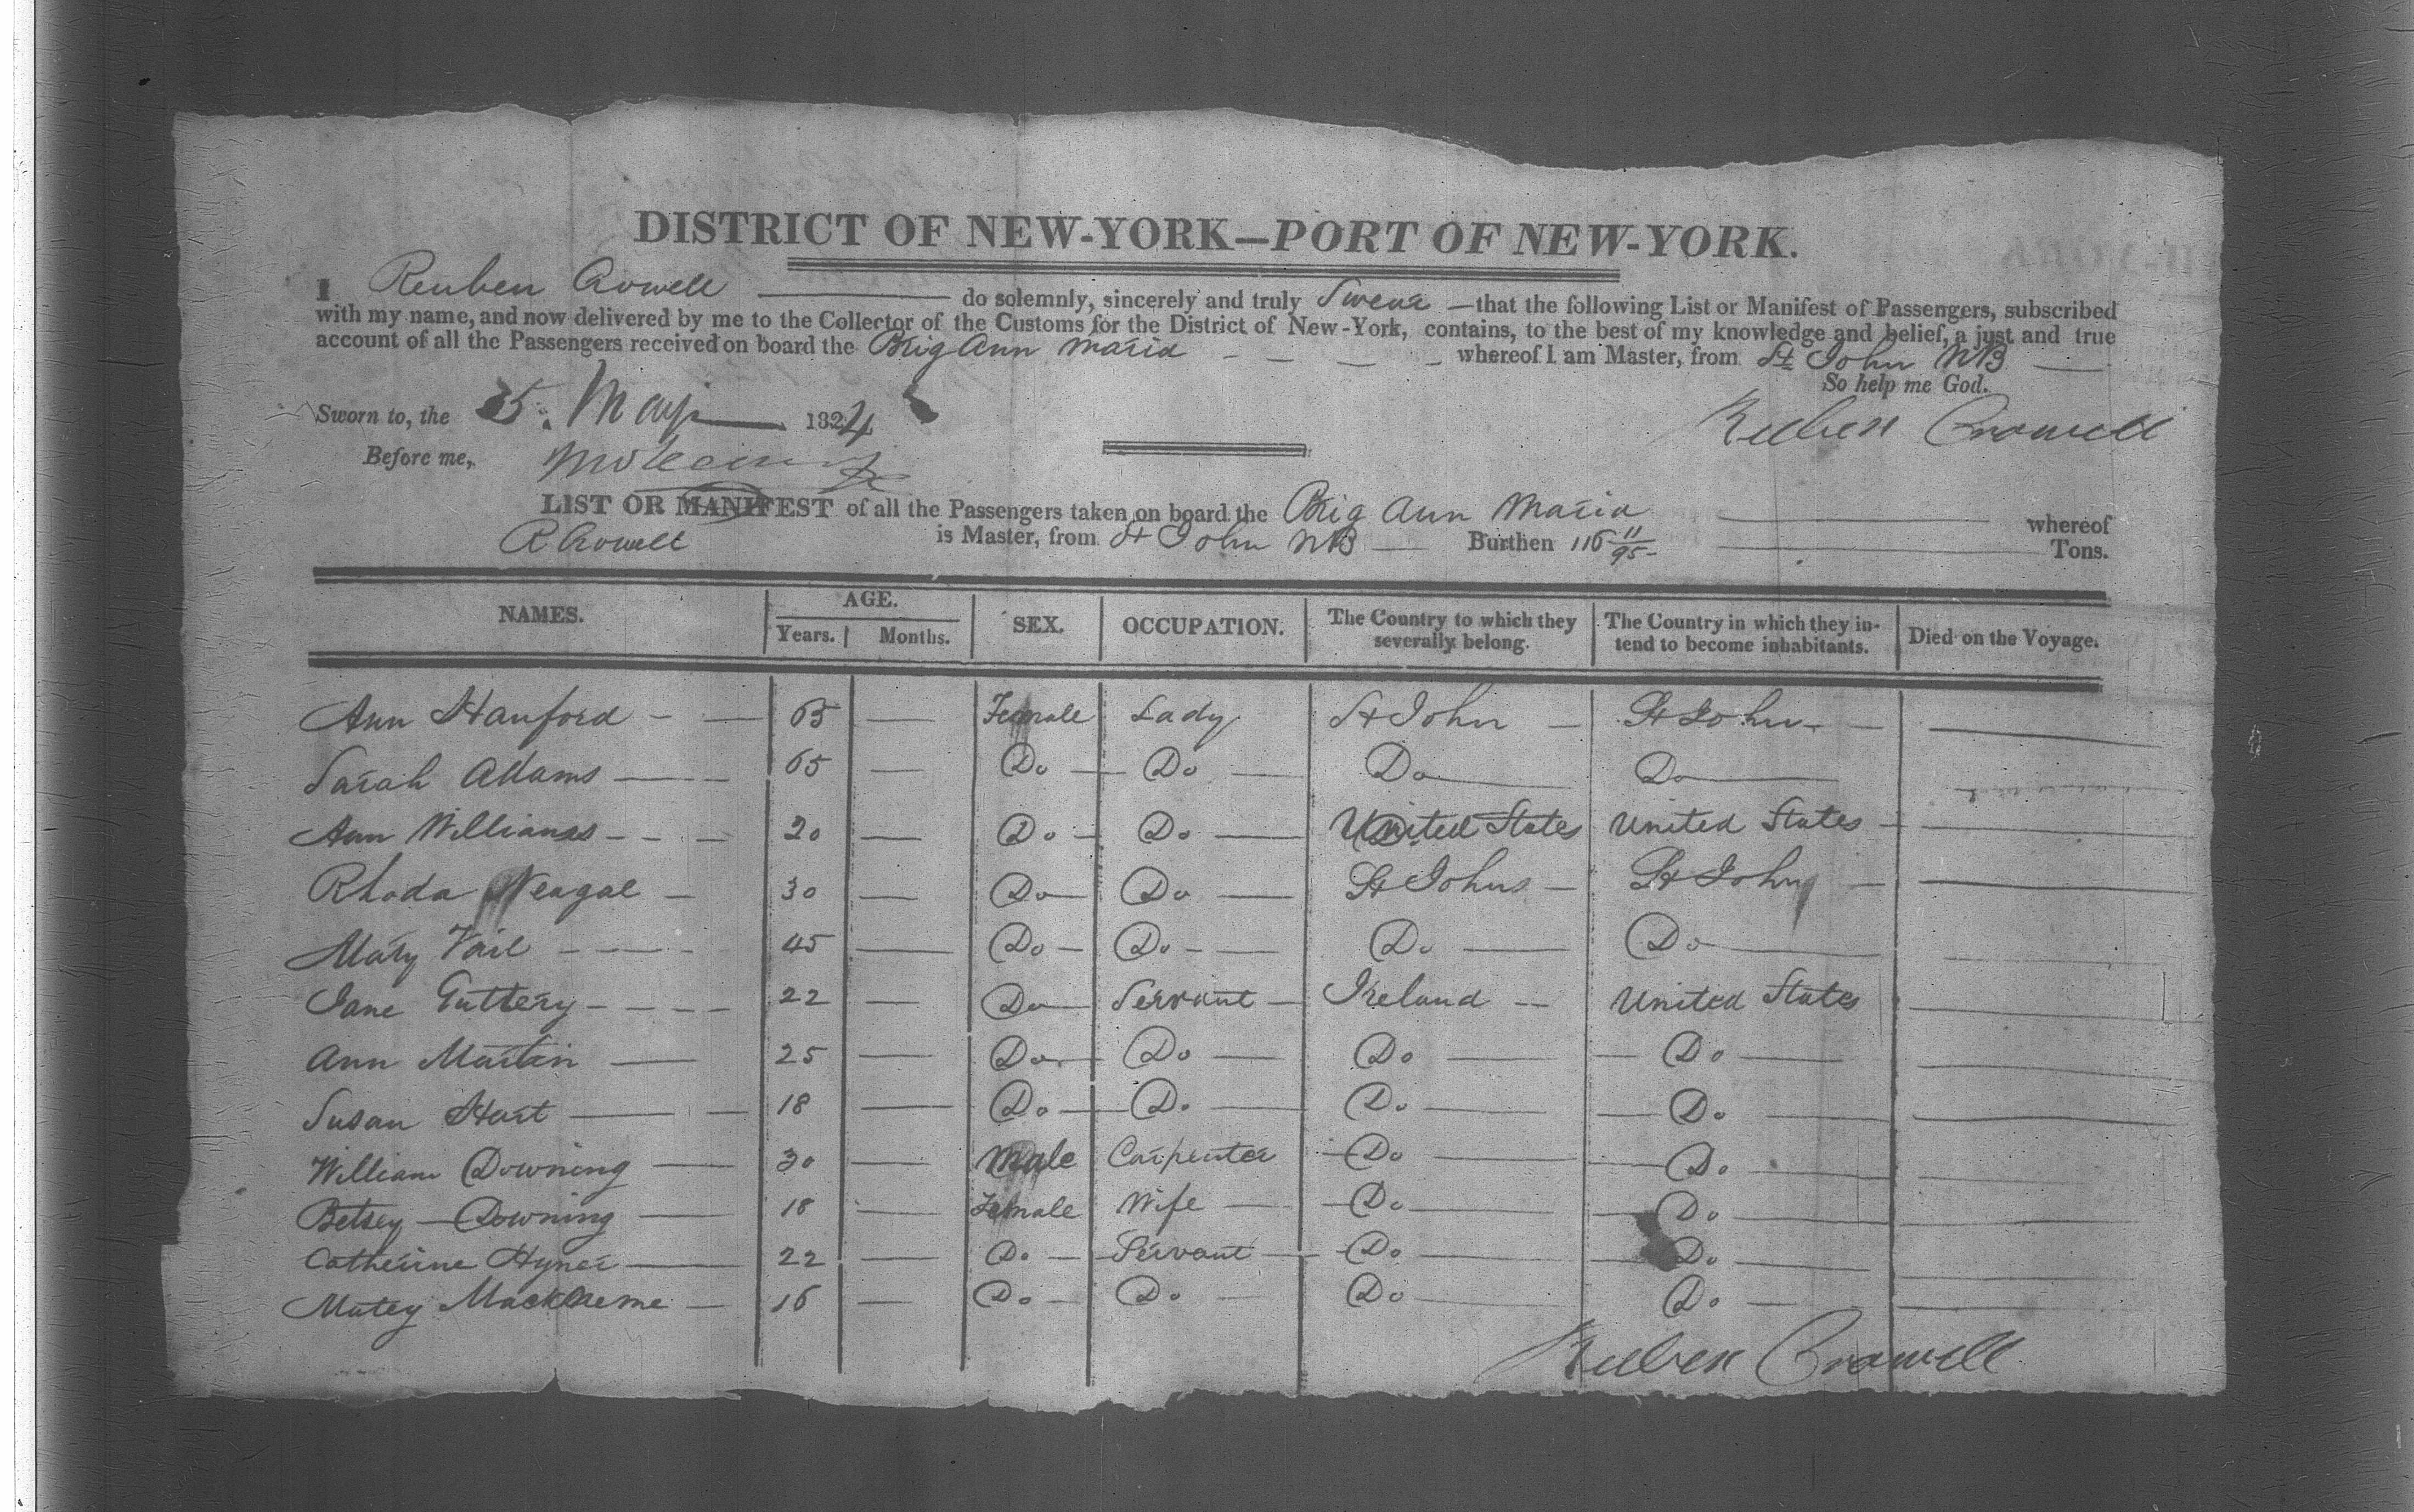 DISTRICT OF NEW-YORK—PORT OF NEW-YORK.
I Reuben Crowell do solemnly, sincerely and truly Swear —that the following List or Manifest of Passengers, subscribed
with my name, and now delivered by me to the Collector of the Customs for the District of New-York, contains, to the best of my knowledge and belief, a just and true
account of all the Passengers received on board the Brig Ann Maria whereof I am Master, from St John NB
So help me God.
Sworn to, the 5. May 1824
Reuben Crowell
Before me,
LIST OR MANIFEST of all the Passengers taken on board the Brig Ann Maria whereof
R Crowell is Master, from St John NB Burthen 116 11/95 Tons.
NAMES. AGE. Years. Months. SEX. OCCUPATION. The Country to which they severally belong. The Country in which they intend to become inhabitants. Died on the Voyage.
Ann Hanford 65 — Female Lady St John St John
Sarah Adams 65 — Do Do Do Do
Ann Williams 20 — Do Do United States United States
Rhoda Neagal 30 — Do Do St Johns St John
Mary Vail 45 — Do Do Do Do
Jane Guttery 22 — Do Servant Ireland United States
Ann Martin 25 — Do Do Do Do
Susan Hart 18 — Do Do Do Do
William Downing 30 — Male Carpenter Do Do
Betsey Downing 18 — Female Wife Do Do
Catherine Hyner 22 — Do Servant Do Do
Matey 16 — Do Do Do Do
Reuben Crowell